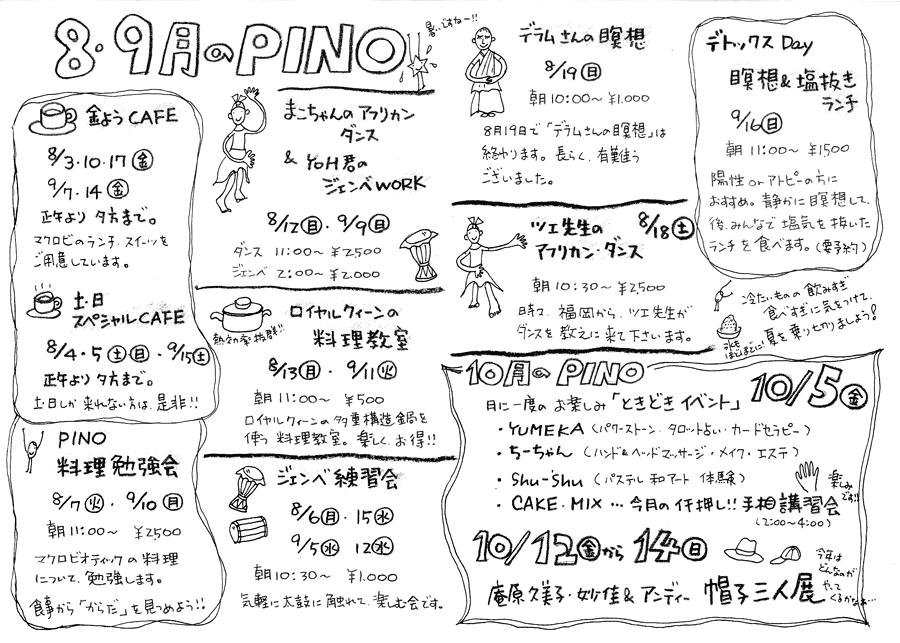 8・9月のPINO
暑いですねー!!
金ようCAFE
8/3・10・17(金)
9/7・14(金)
正午より夕方まで。
マクロビのランチ・スイーツを
ご用意しています。
土・日
スペシャルCAFE
8/4・5(土)(日)・9/15(土)
正午より夕方まで。
土・日しか来れない方は、是非!!
PINO
料理勉強会
8/7(火)・9/10(月)
朝11:00〜 ¥2500
マクロビオティックの料理
について、勉強します。
食事から「からだ」を見つめよう!!
まこちゃんのアフリカン
ダンス
& YOH君の
ジェンベWORK
8/12(日)・9/9(日)
ダンス 11:00〜 ¥2500
ジェンベ 2:00〜 ¥2.000
ロイヤルクィーンの
料理教室
8/13(月)・9/11(火)
朝11:00〜 ¥500
ロイヤルクィーンの多重構造金局を
使う料理教室。楽しく、お得!!
ジェンベ練習会
8/6(月)・15(水)
9/5(水) 12(水)
朝10:30〜 ¥1.000
気軽に太鼓に触れて、楽しむ会です。
デラムさんの瞑想
8/19(日)
朝10:00〜 ¥1.000
8月19日で「デラムさんの瞑想」は
終わります。長らく、有難う
ございました。
ツェ先生の
アフリカン・ダンス
8/18(土)
朝10:30〜 ¥2500
時々、福岡から、ツェ先生が
ダンスを教えに来て下さいます。
デトックスDay
瞑想&塩抜き
ランチ
9/16(日)
朝11:00〜 ¥1500
陽性orアトピーの方に
おすすめ。静かに瞑想して、
後、みんなで塩気を抜いた
ランチを食べます。(要予約)
冷たいものの飲みすぎ
食べすぎに気をつけて、
夏を乗り切りましょう!
氷も
ほどほどに!
10月のPINO
10/5(金)
月に一度のお楽しみ「ときどきイベント」
・YUMEKA(パワーストーン・タロット占い・カードセラピー)
・ちーちゃん(ハンド&ヘッドマッサージ・メイク・エステ)
・Shu-Shu(パステル和アート体験)
・CAKE・MIX…今月のイチ押し!!手相講習会
(2:00〜4:00)
楽しみ
です!!
10/12(金)から14(日)
庵原久美子・妙佳&アンディー 帽子三人展
今年は
どんなのが
やって
くるかなぁ…